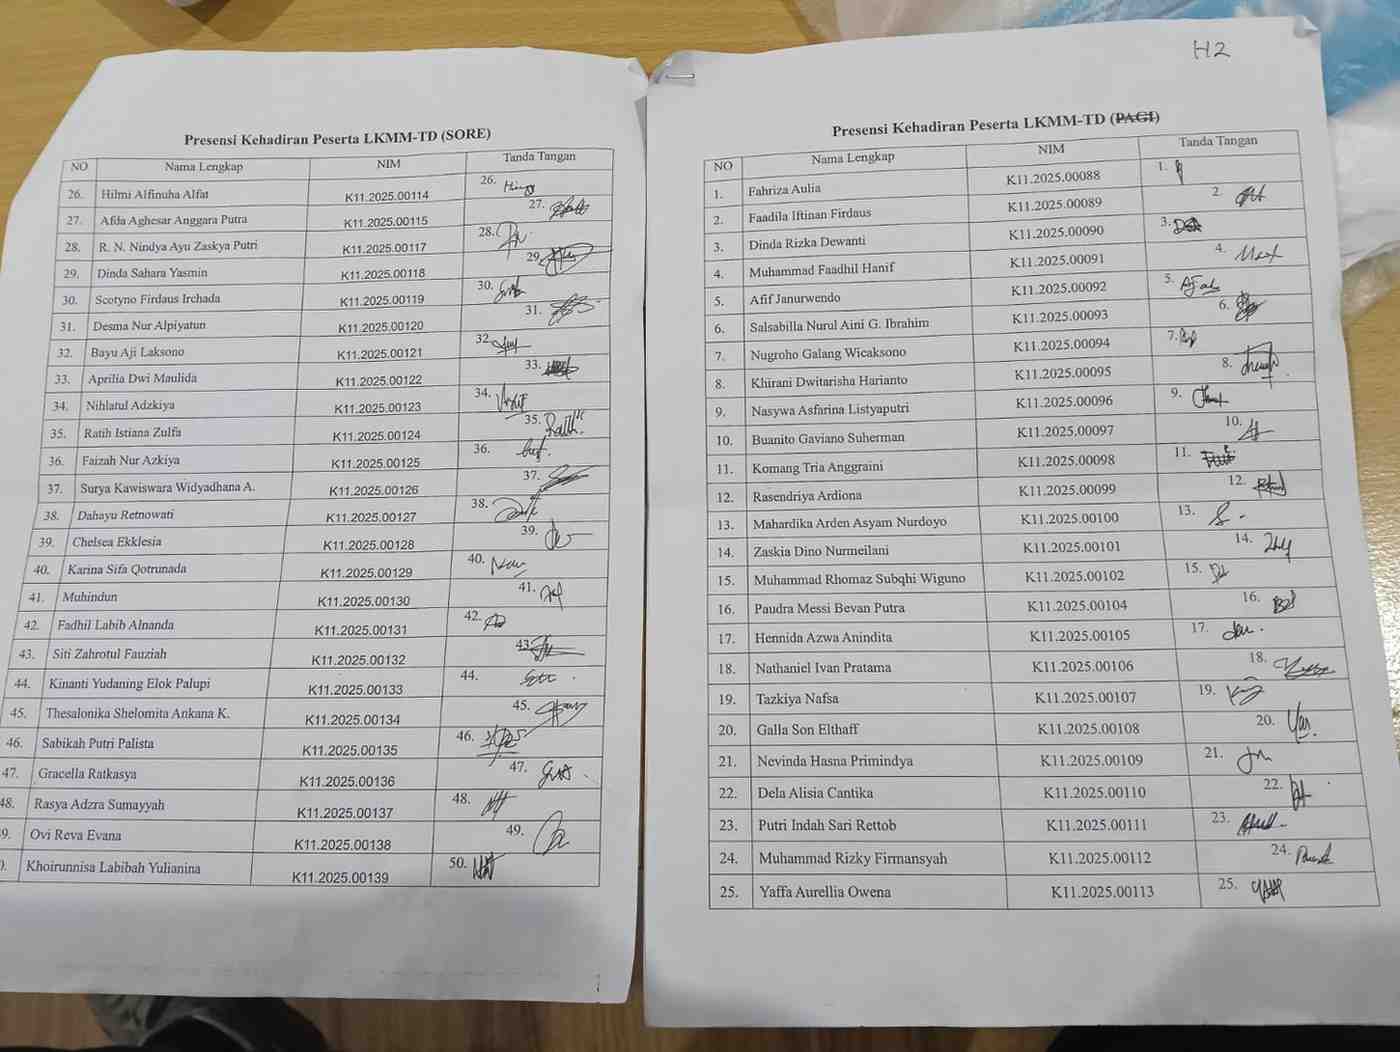 Presensi Kehadiran Peserta LKMM-TD (SORE)
NO Nama Lengkap NIM Tanda Tangan
26. Hilmi Alfinuha Alfat K11.2025.00114 26.
27. Afda Aghesar Anggara Putra K11.2025.00115 27.
28. R. N. Nindya Ayu Zaskya Putri K11.2025.00117 28.
29. Dinda Sahara Yasmin K11.2025.00118 29.
30. Scotyno Firdaus Irchada K11.2025.00119 30.
31. Desma Nur Alpiyatun K11.2025.00120 31.
32. Bayu Aji Laksono K11.2025.00121 32.
33. Aprilia Dwi Maulida K11.2025.00122 33.
34. Nihlatul Adzkiya K11.2025.00123 34.
35. Ratih Istiana Zulfa K11.2025.00124 35.
36. Faizah Nur Azkiya K11.2025.00125 36.
37. Surya Kawiswara Widyadhana A. K11.2025.00126 37.
38. Dahayu Retnowati K11.2025.00127 38.
39. Chelsea Ekklesia K11.2025.00128 39.
40. Karina Sifa Qotrunada K11.2025.00129 40.
41. Muhindun K11.2025.00130 41.
42. Fadhil Labib Alnanda K11.2025.00131 42.
43. Siti Zahrotul Fauziah K11.2025.00132 43.
44. Kinanti Yudaning Elok Palupi K11.2025.00133 44.
45. Thesalonika Shelomita Ankana K. K11.2025.00134 45.
46. Sabikah Putri Palista K11.2025.00135 46.
47. Gracella Ratkasya K11.2025.00136 47.
48. Rasya Adzra Sumayyah K11.2025.00137 48.
9. Ovi Reva Evana K11.2025.00138 49.
). Khoirunnisa Labibah Yulianina K11.2025.00139 50.
H2
Presensi Kehadiran Peserta LKMM-TD (PAGI)
NO Nama Lengkap NIM Tanda Tangan
1. Fahriza Aulia K11.2025.00088 1.
2. Faadila Iftinan Firdaus K11.2025.00089 2.
3. Dinda Rizka Dewanti K11.2025.00090 3.
4. Muhammad Faadhil Hanif K11.2025.00091 4.
5. Afif Janurwendo K11.2025.00092 5.
6. Salsabilla Nurul Aini G. Ibrahim K11.2025.00093 6.
7. Nugroho Galang Wicaksono K11.2025.00094 7.
8. Khirani Dwitarisha Harianto K11.2025.00095 8.
9. Nasywa Asfarina Listyaputri K11.2025.00096 9.
10. Buanito Gaviano Suherman K11.2025.00097 10.
11. Komang Tria Anggraini K11.2025.00098 11.
12. Rasendriya Ardiona K11.2025.00099 12.
13. Mahardika Arden Asyam Nurdoyo K11.2025.00100 13.
14. Zaskia Dino Nurmeilani K11.2025.00101 14.
15. Muhammad Rhomaz Subqhi Wiguno K11.2025.00102 15.
16. Paudra Messi Bevan Putra K11.2025.00104 16.
17. Hennida Azwa Anindita K11.2025.00105 17.
18. Nathaniel Ivan Pratama K11.2025.00106 18.
19. Tazkiya Nafsa K11.2025.00107 19.
20. Galla Son Elthaff K11.2025.00108 20.
21. Nevinda Hasna Primindya K11.2025.00109 21.
22. Dela Alisia Cantika K11.2025.00110 22.
23. Putri Indah Sari Rettob K11.2025.00111 23.
24. Muhammad Rizky Firmansyah K11.2025.00112 24.
25. Yaffa Aurellia Owena K11.2025.00113 25.